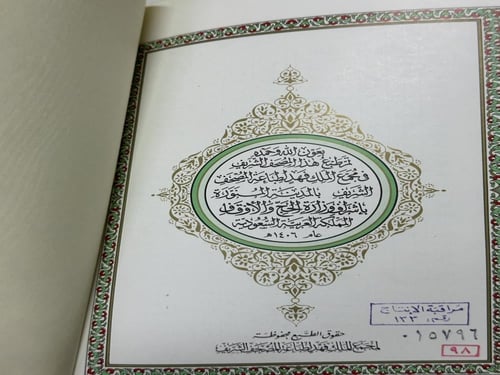 بعون الله وحمده
تم طبع هذا المصحف الشريف
في مجمع الملك فهد لطباعة المصحف
الشريف بالمدينة المنورة
بإشراف وزارة الحج والأوقاف
المملكة العربية السعودية
عام ١٤٠٦هـ
مراقبة الإنتاج
رقم: ١٣٣
٠١٥٧٩٦
٩٨
حقوق الطبع محفوظة
لمجمع الملك فهد لطباعة المصحف الشريف